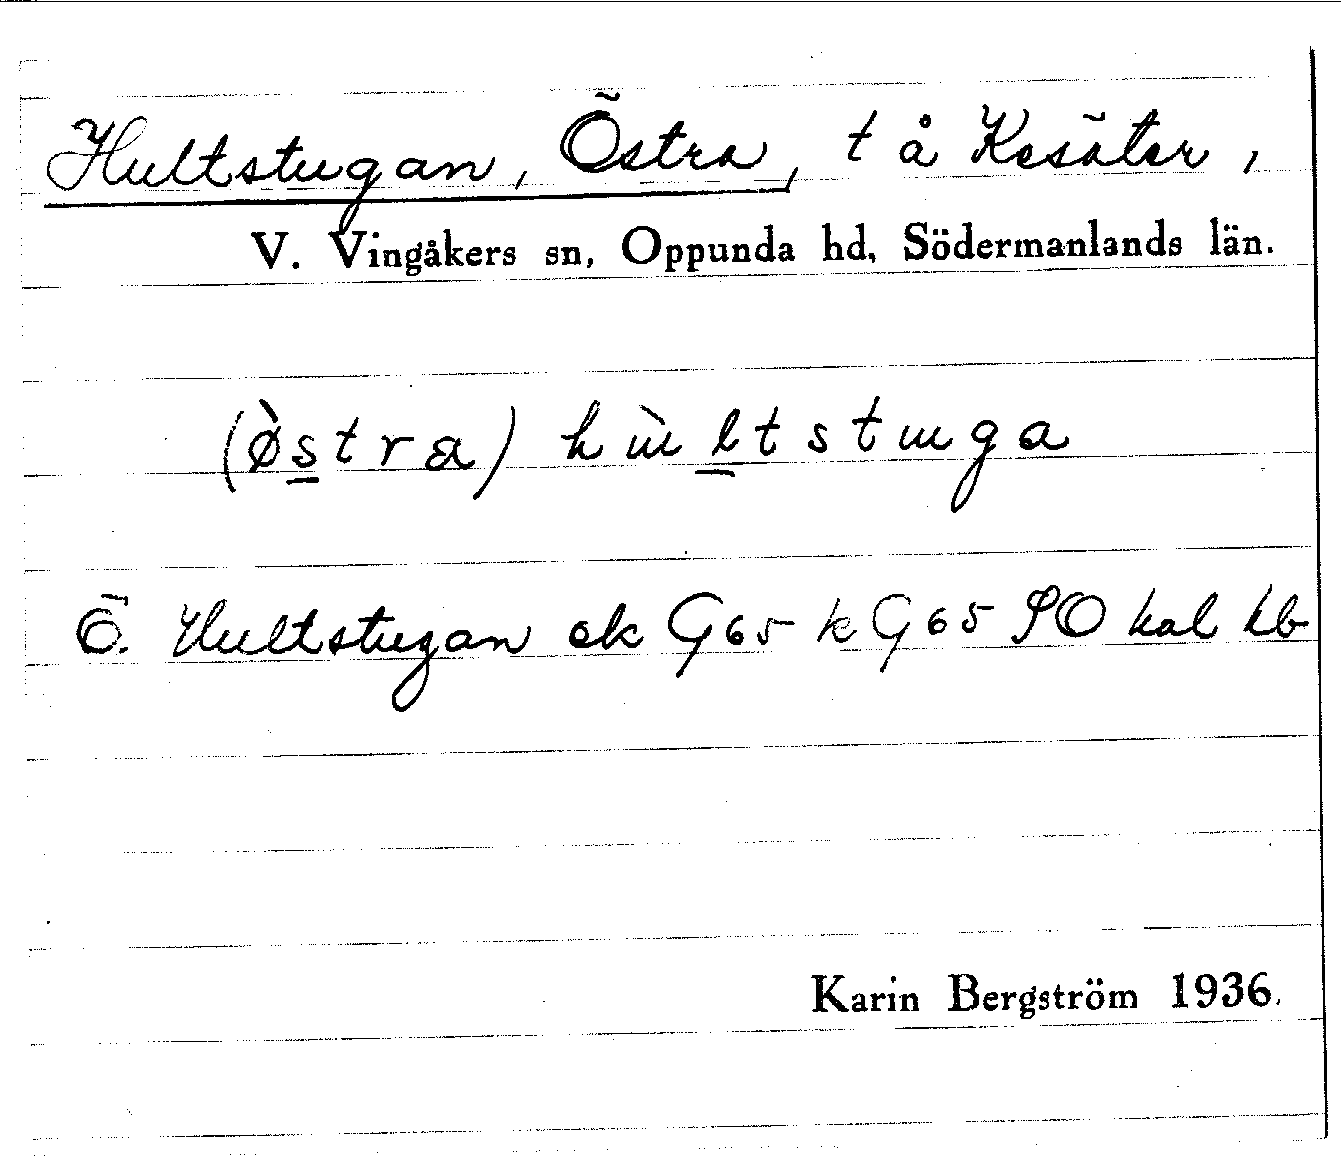 Hultstugan, Östra, t å Kesäter,
V. Vingåkers sn, Oppunda hd, Södermanlands län.
(ø̀stra) hùltstuga
Ö. Hultstugan ek G65 k G65 PO hal hb
Karin Bergström 1936.